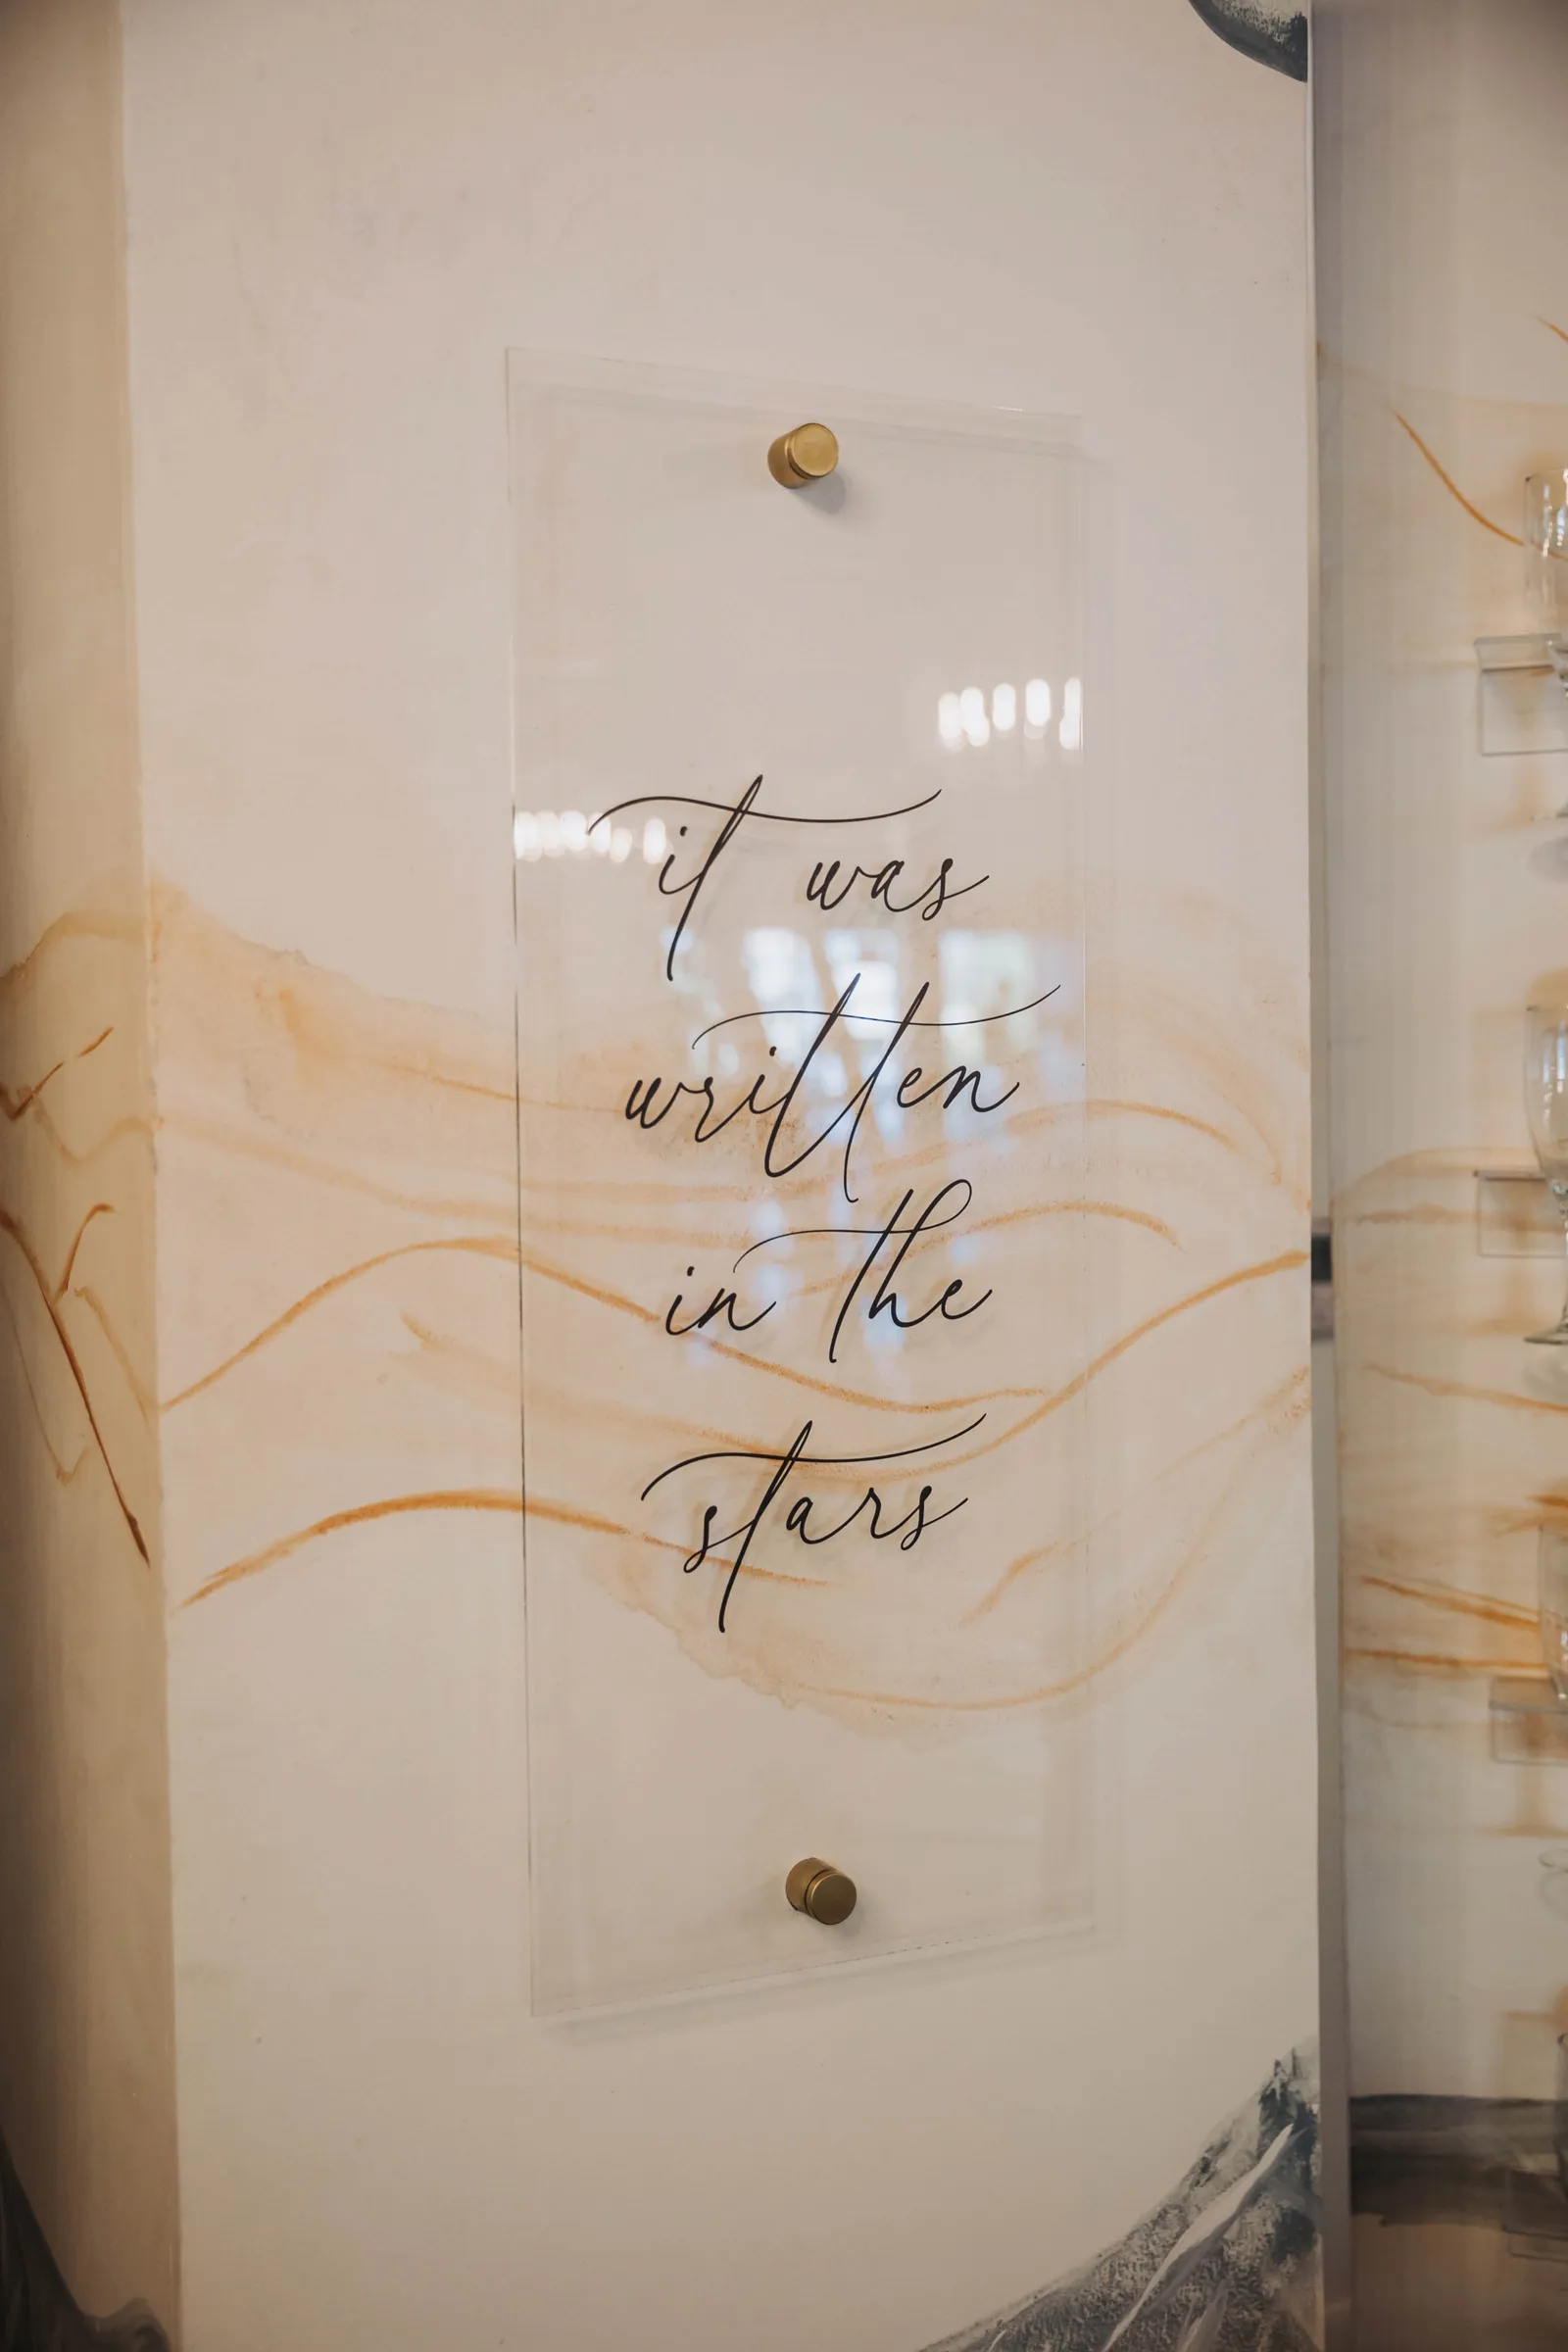 it was
written
in the
stars